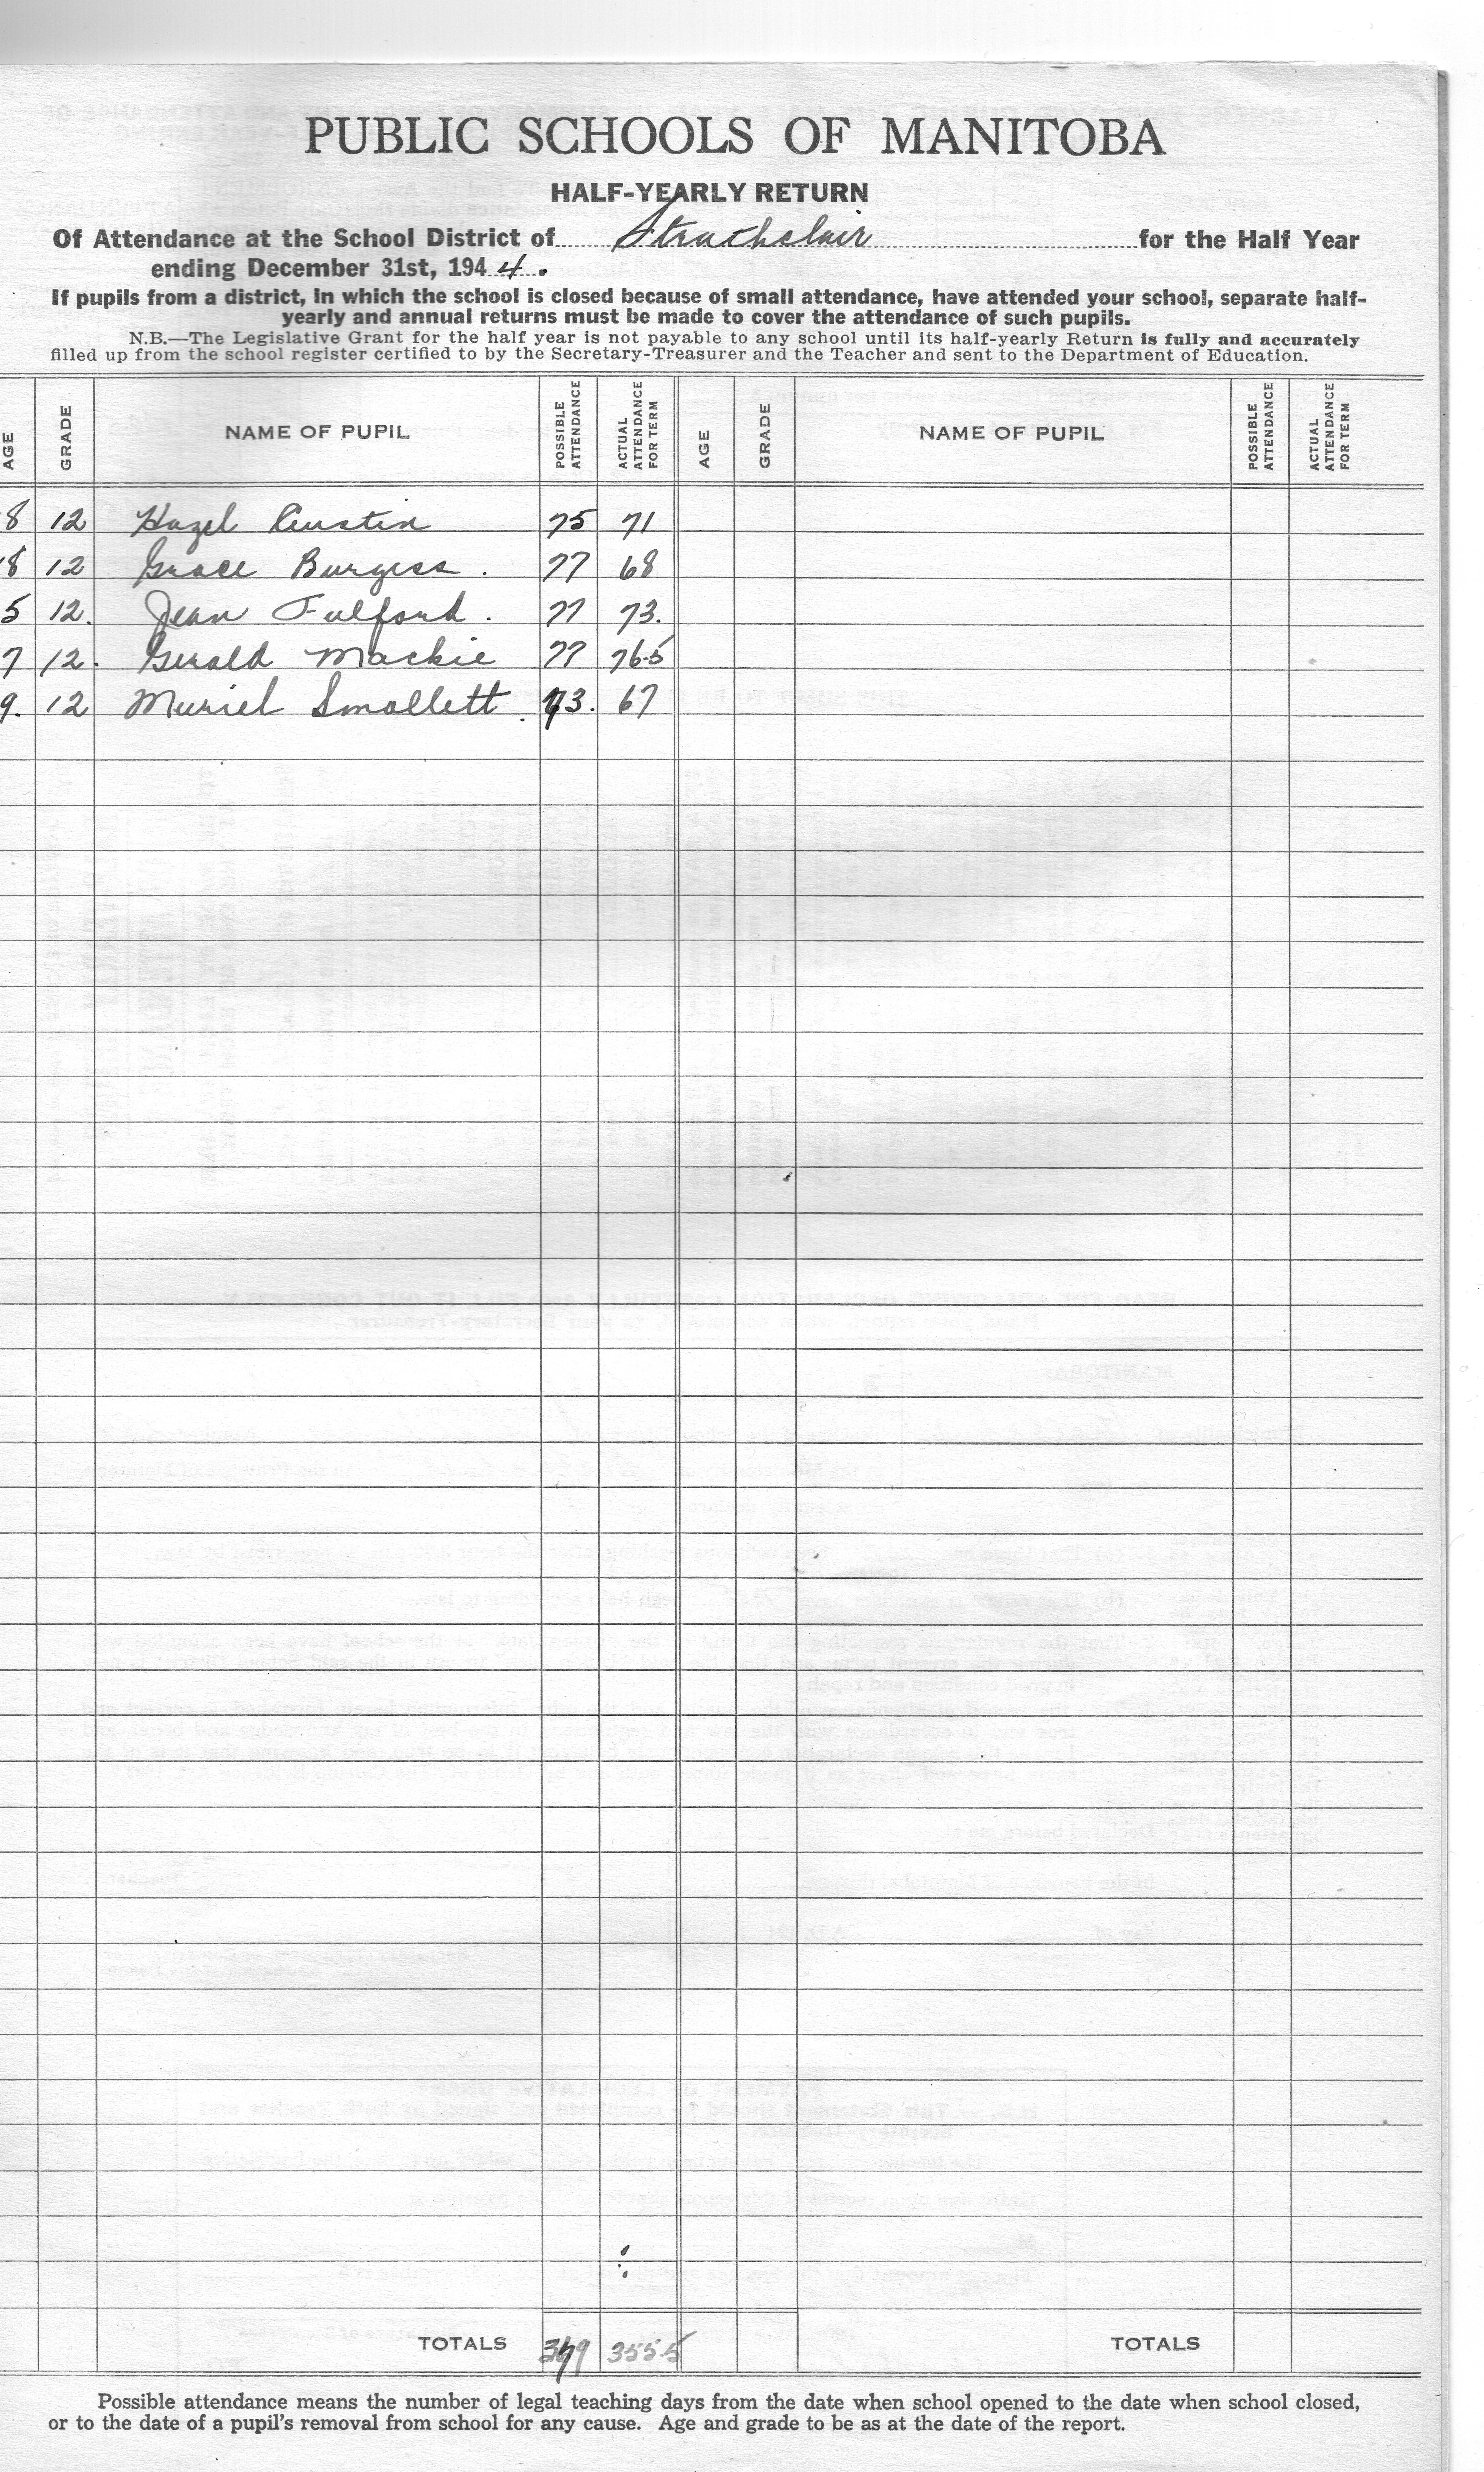 PUBLIC SCHOOLS OF MANITOBA
HALF-YEARLY RETURN
Of Attendance at the School District of Strathclair for the Half Year
ending December 31st, 1944.
If pupils from a district, in which the school is closed because of small attendance, have attended your school, separate half-
yearly and annual returns must be made to cover the attendance of such pupils.
N.B.—The Legislative Grant for the half year is not payable to any school until its half-yearly Return is fully and accurately
filled up from the school register certified to by the Secretary-Treasurer and the Teacher and sent to the Department of Education.
AGE GRADE NAME OF PUPIL POSSIBLE ATTENDANCE ACTUAL ATTENDANCE FOR TERM AGE GRADE NAME OF PUPIL POSSIBLE ATTENDANCE ACTUAL ATTENDANCE FOR TERM
8 12 Hazel Austin 75 71
18 12 Grace Burgess. 77 68
5 12. Jean Fulford. 77 73.
7 12. Gerald Mackie 77 76.5
9. 12 Muriel Smallett. 73. 67
TOTALS 379 355.5 TOTALS
Possible attendance means the number of legal teaching days from the date when school opened to the date when school closed,
or to the date of a pupil's removal from school for any cause. Age and grade to be as at the date of the report.